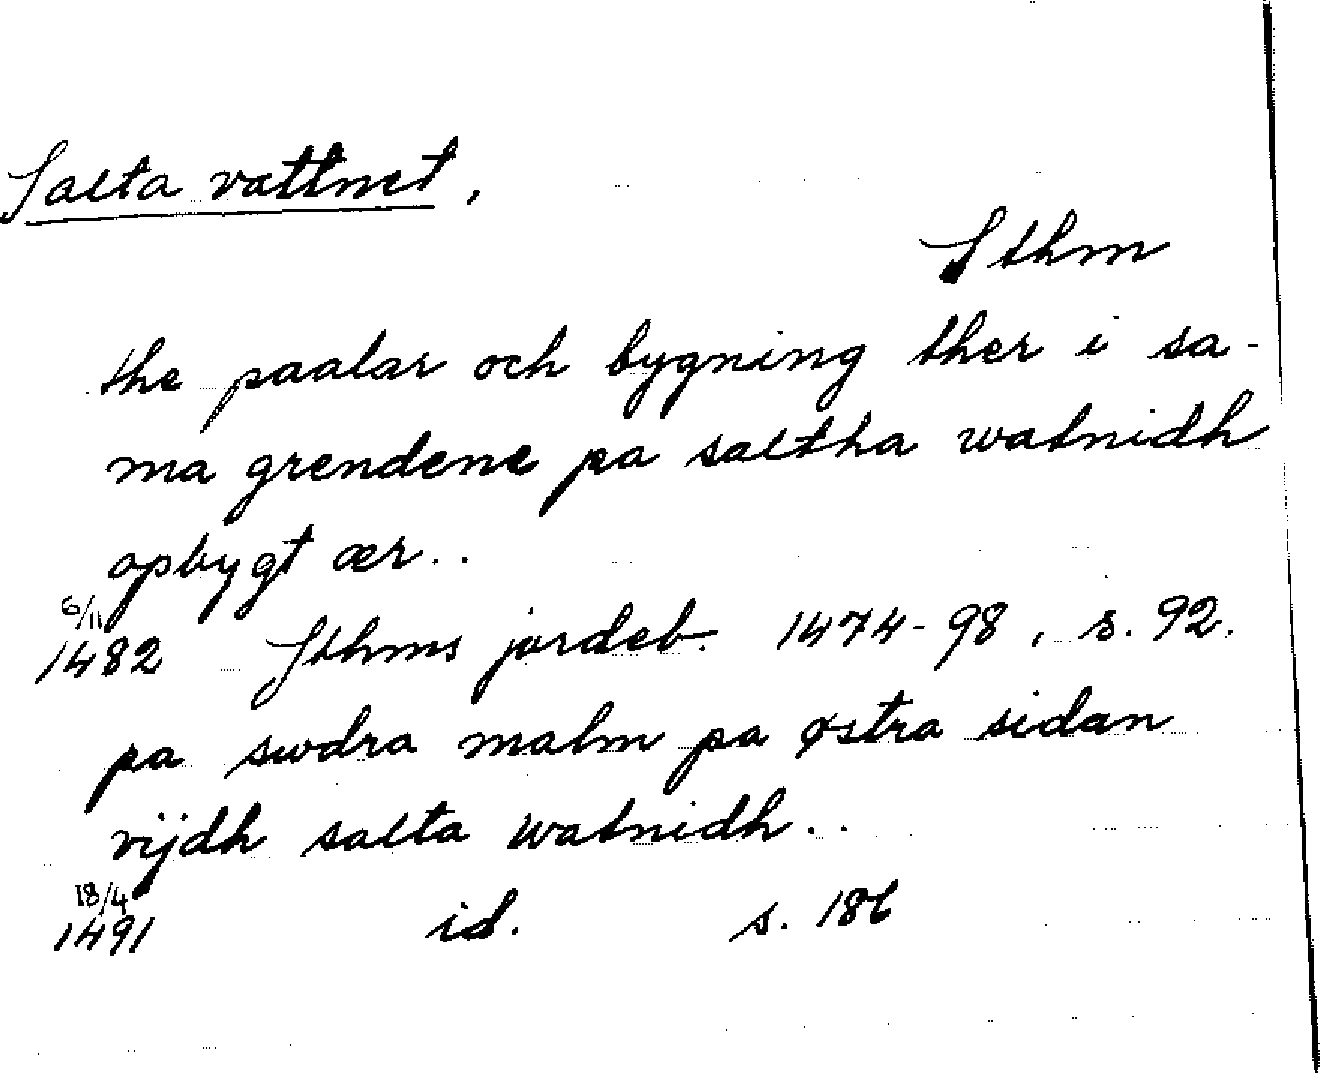 Salta vattnet,
Sthm
the paalar och bygning ther i sa-
ma grendene pa saltha watnidh
opbygt ær..
6/11
1482 Sthms jordeb. 1474-98, s. 92.
pa swdra malm pa østra sidan
vijdh salta watnidh..
18/4
1491 id. s. 186